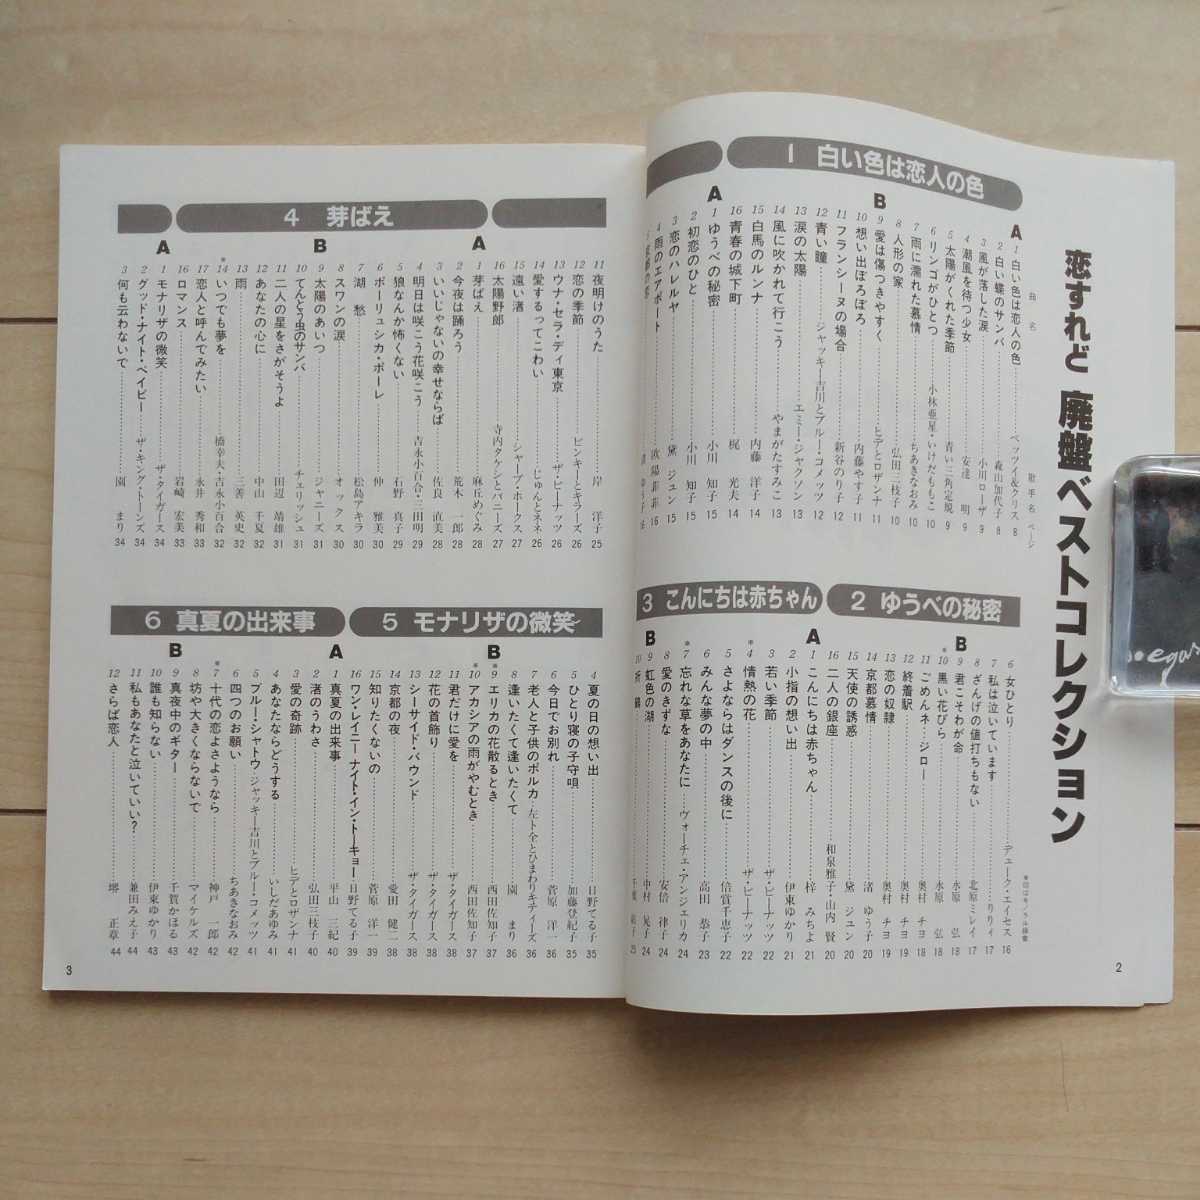 恋すれど 廃盤ベストコレクション
曲名 歌手名 ページ
1 白い色は恋人の色
A
1 白い色は恋人の色 ベッツイ&クリス 8
2 白い蝶のサンバ 森山加代子 8
3 風が落した涙 小川ローザ 9
4 潮風を待つ少女 安達 明 9
5 太陽がくれた季節 青い三角定規 9
6 リンゴがひとつ 小林亜星・いけだももこ 10
7 雨に濡れた慕情 ちあきなおみ 10
8 人形の家 弘田三枝子 10
B
9 愛は傷つきやすく ヒデとロザンナ 11
10 想い出ぼろぼろ 内藤やす子 11
11 フランシーヌの場合 新谷のり子 11
12 青い瞳 ジャッキー吉川とブルー・コメッツ 12
13 涙の太陽 エミー・ジャクソン 12
14 風に吹かれて行こう やまがたすみこ 13
15 白馬のルンナ 内藤 洋子 14
16 青春の城下町 梶 光夫 14
A
1 ゆうべの秘密 小川 知子 15
2 初恋のひと 小川 知子 15
3 恋のハレルヤ 黛 ジュン 15
4 雨のエアポート 欧陽 菲菲 16
2 ゆうべの秘密
6 女ひとり デューク・エイセス 16
7 私は泣いています りりィ 17
8 ざんげの値打ちもない 北原ミレイ 17
B
9 君こそわが命 水原 弘
10 黒い花びら 水原 弘
11 ごめんネ・ジロー 奥村 チヨ 18
12 終着駅 奥村 チヨ 19
13 恋の奴隷 奥村 チヨ 19
14 京都慕情 渚 ゆう子 20
15 天使の誘惑 黛 ジュン 20
16 二人の銀座 和泉雅子・山内 賢 20
3 こんにちは赤ちゃん
A
1 こんにちは赤ちゃん 梓 みちよ 21
2 小指の想い出 伊東ゆかり 21
3 若い季節 ザ・ピーナッツ 22
4 情熱の花 ザ・ピーナッツ 22
5 さよならはダンスの後に 倍賞千恵子 22
6 みんな夢の中 高田 恭子 23
7 忘れな草をあなたに ヴォーチェ・アンジェリカ
8 愛のきずな 安倍 律子 24
B
9 虹色の湖 中村 晃子 24
10 折鶴 千葉 紘子 25
※印はモノラル録音
2
11 夜明けのうた 岸 洋子 25
12 恋の季節 ピンキーとキラーズ
13 ウナ・セラ・ディ東京 ザ・ピーナッツ 26
14 愛するってこわい じゅんとネネ 26
15 遠い渚 シャープ・ホークス 27
16 太陽野郎 寺内タケシとバニーズ 27
4 芽ばえ
A
1 芽ばえ 麻丘めぐみ 28
2 今夜は踊ろう 荒木 一郎 28
3 いいじゃないの幸せならば 佐良 直美 28
4 明日は咲こう花咲こう 吉永小百合・三田明 29
5 狼なんか怖くない 石野 真子 29
6 ポーリュシカ・ポーレ 仲 雅美 30
7 湖愁 松島アキラ 30
8 スワンの涙 オックス 30
B
9 太陽のあいつ ジャニーズ 31
10 てんとう虫のサンバ チェリッシュ 31
11 二人の星をさがそうよ 田辺 靖雄 31
12 あなたの心に 中山 千夏 32
13 雨 三善 英史 32
14 いつでも夢を 橋幸夫・吉永小百合 32
15 恋人と呼んでみたい 永井 秀和 33
16 ロマンス 岩崎 宏美 33
A
1 モナリザの微笑 ザ・タイガース 34
2 グッド・ナイト・ベイビー ザ・キング・トーンズ 34
3 何も云わないで 園 まり 34
5 モナリザの微笑
4 夏の日の想い出 日野てる子 35
5 ひとり寝の子守唄 加藤登紀子 35
6 今日でお別れ 菅原 洋一 36
7 老人と子供のポルカ 左卜全とひまわりキティーズ 36
8 逢いたくて逢いたくて 園 まり 36
B
9 エリカの花散るとき 西田佐知子 37
10 アカシアの雨がやむとき 西田佐知子 37
11 君だけに愛を ザ・タイガース 37
12 花の首飾り ザ・タイガース 38
13 シーサイド・バウンド ザ・タイガース 38
14 京都の夜 愛田 健二 38
15 知りたくないの 菅原 洋一 39
16 ワン・レイニー・ナイト・イン・トーキョー 日野てる子 39
6 真夏の出来事
A
1 真夏の出来事 平山 三紀 40
2 渚のうわさ 弘田三枝子 40
3 愛の奇跡 ヒデとロザンナ 41
4 あなたならどうする いしだあゆみ 41
5 ブルー・シャトウ ジャッキー吉川とブルー・コメッツ 41
6 四つのお願い ちあきなおみ 42
7 十代の恋よさようなら 神戸 一郎 42
8 坊や大きくならないで マイケルズ 42
B
9 真夜中のギター 千賀かほる 43
10 誰も知らない 伊東ゆかり 43
11 私もあなたと泣いていい? 兼田みえ子 44
12 さらば恋人 堺 正章 44
3